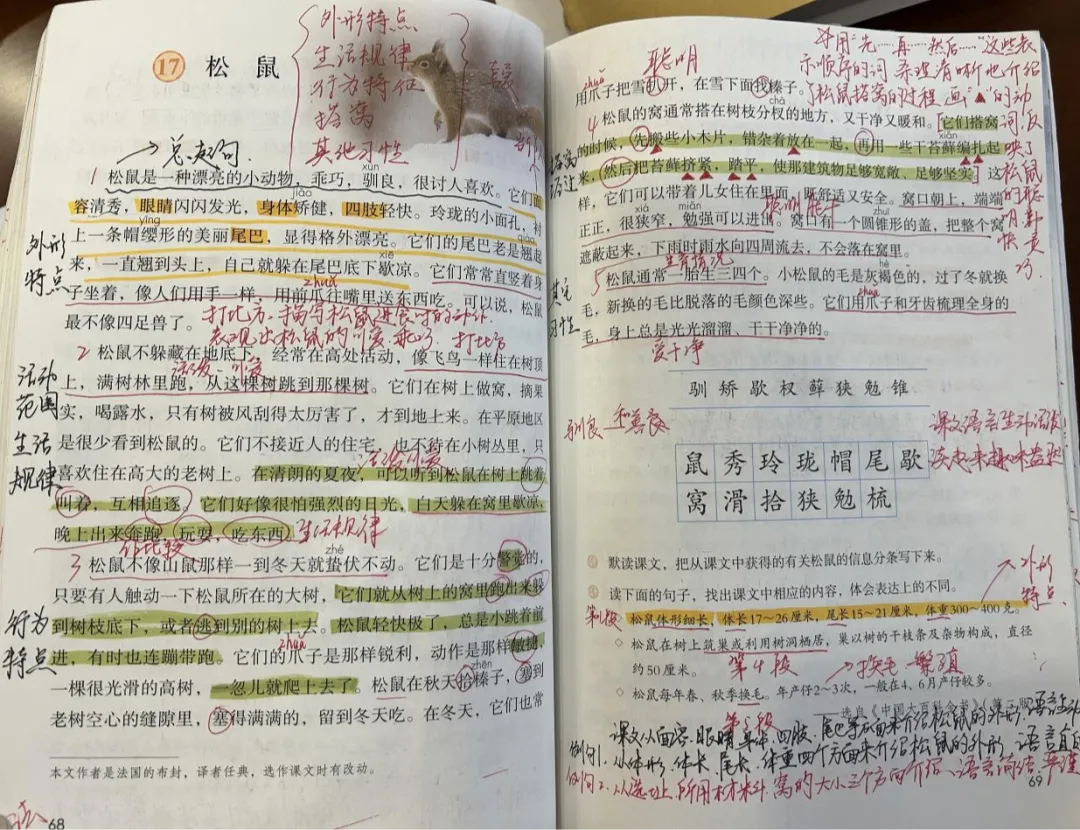 17 松鼠
外形特点
生活规律
行为特征
搭窝
其他习性
→总起句.
1 松鼠是一种漂亮的小动物，乖巧，驯良，很讨人喜欢。它们面
容清秀，眼睛闪闪发光，身体矫健，四肢轻快。玲珑的小面孔，衬
上一条帽缨形的美丽尾巴，显得格外漂亮。它们的尾巴老是翘起
来，一直翘到头上，自己就躲在尾巴底下歇凉。它们常常直竖着身
子坐着，像人们用手一样，用前爪往嘴里送东西吃。可以说，松鼠
最不像四足兽了。
外形
特点
打比方
2 松鼠不躲藏在地底下，经常在高处活动，像飞鸟一样住在树顶
上，满树林里跑，从这棵树跳到那棵树。它们在树上做窝，摘果
实，喝露水，只有树被风刮得太厉害了，才到地上来。在平原地区
是很少看到松鼠的。它们不接近人的住宅，也不待在小树丛里，只
喜欢住在高大的老树上。在清朗的夏夜，可以听到松鼠在树上跳着
叫着，互相追逐。它们好像很怕强烈的日光，白天躲在窝里歇凉，
晚上出来奔跑，玩耍，吃东西。
活动
范围
生活
规律
生活规律
作比较
3 松鼠不像山鼠那样一到冬天就蛰伏不动。它们是十分警觉的，
只要有人触动一下松鼠所在的大树，它们就从树上的窝里跑出来躲
到树枝底下，或者逃到别的树上去。松鼠轻快极了，总是小跳着前
进，有时也连蹦带跑。它们的爪子是那样锐利，动作是那样敏捷，
一棵很光滑的高树，一忽儿就爬上去了。松鼠在秋天拾榛子，塞到
老树空心的缝隙里，塞得满满的，留到冬天吃。在冬天，它们也常
行为
特点
本文作者是法国的布封，译者任典，选作课文时有改动。
68
聪明
用爪子把雪扒开，在雪下面找榛子。
4 松鼠的窝通常搭在树枝分杈的地方，又干净又暖和。它们搭窝
的时候，先搬些小木片，错杂着放在一起，再用一些干苔藓编扎起
来，然后把苔藓挤紧，踏平，使那建筑物足够宽敞、足够坚实。这
样，它们可以带着儿女住在里面，既舒适又安全。窝口朝上，端端
正正，很狭窄，勉强可以进出。窝口有一个圆锥形的盖，把整个窝
遮蔽起来，下雨时雨水向四周流去，不会落在窝里。
5 松鼠通常一胎生三四个。小松鼠的毛是灰褐色的，过了冬就换
毛，新换的毛比脱落的毛颜色深些。它们用爪子和牙齿梳理全身的
毛，身上总是光光溜溜、干干净净的。
爱干净
驯矫歇杈藓狭勉锥
驯良 和善良
课文语言生动活泼
读起来趣味盎然
鼠秀玲珑帽尾歇
窝滑拾狭勉梳
默读课文，把从课文中获得的有关松鼠的信息分条写下来。
读下面的句子，找出课文中相应的内容，体会表达上的不同。
外形
特点
第1段
○ 松鼠体形细长，体长17～26厘米，尾长15～21厘米，体重300～400克。
○ 松鼠在树上筑巢或利用树洞栖居，巢以树的干枝条及杂物构成，直径
约50厘米。
第4段
换毛 繁殖
○ 松鼠每年春、秋季换毛。年产仔2～3次，一般在4、6月产仔较多。
第5段
例句1. 从体形、体长、尾长、体重四个方面来介绍松鼠的外形
例句2. 从选址、所用材料、窝的大小三个方面介绍
69